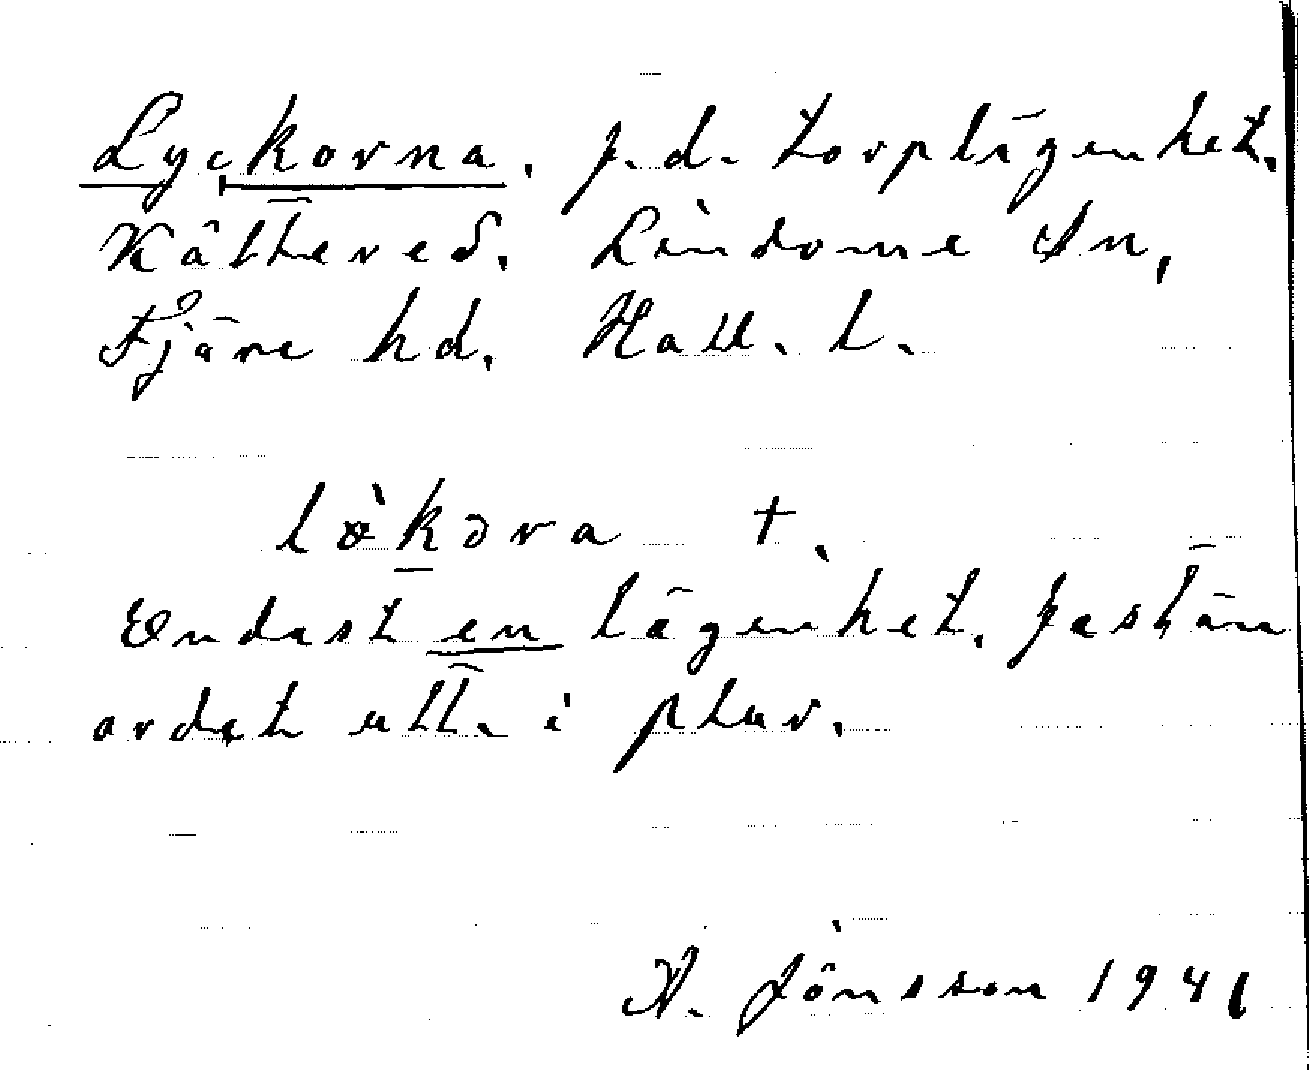 Lyckorna. f.d. torplägenhet.
Kåltered. Lindome Sn,
Fjäre hd. Hall. l.
lø̀kəra t.
Endast en lägenhet. fastän
ordet utt. i plur.
A. Jönsson 1941